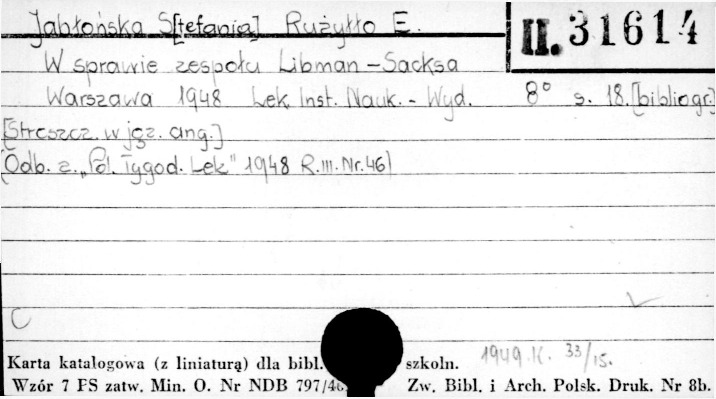 Jabłońska S[tefania] Rużyłło E.
II. 31614
W sprawie zespołu Libman-Sacksa
Warszawa 1948 Lek. Inst. Nauk.-Wyd. 8° s. 18. [bibliogr.]
[Streszcz. w jęz. ang.]
[Odb. z. „Pol. Tygod. Lek" 1948 R.III. Nr.46]
C
1949.K. 33/15.
Karta katalogowa (z liniaturą) dla bibl. szkoln.
Wzór 7 PS zatw. Min. O. Nr NDB 797/46 Zw. Bibl. i Arch. Polsk. Druk. Nr 8b.